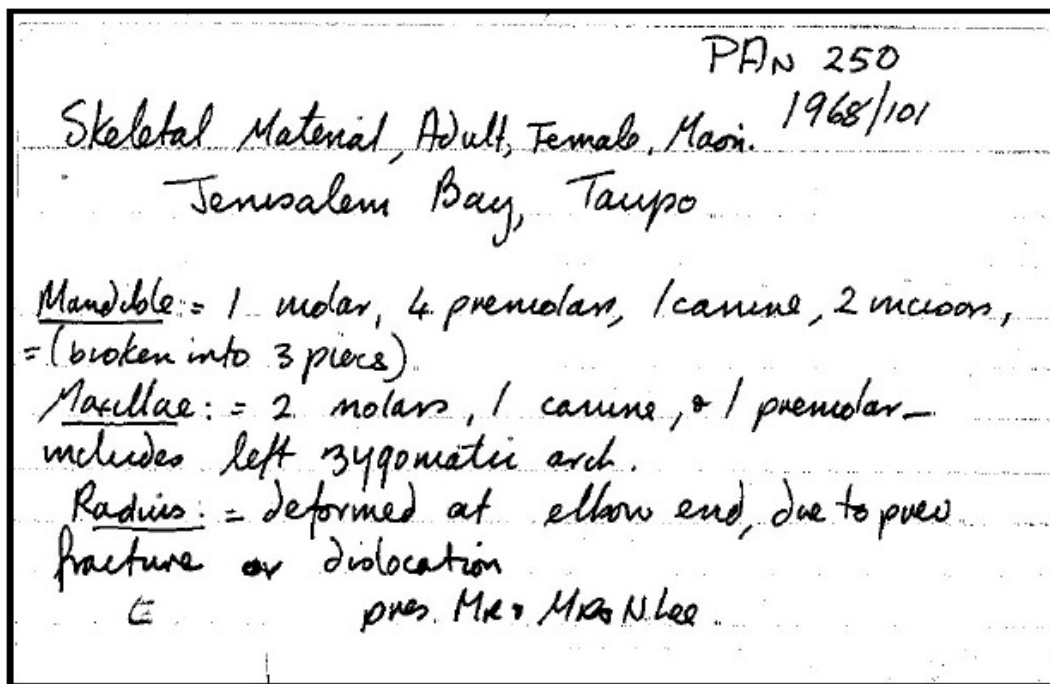 PAN 250
1968/101
Skeletal Material, Adult, Female, Maori.
Jerusalem Bay, Taupo
Mandible := 1 molar, 4 premolars, 1 canine, 2 incisors,
= (broken into 3 pieces)
Maxillae : = 2 molars, 1 canine, & 1 premolar –
includes left zygomatic arch.
Radius : = deformed at elbow end, due to prev
fracture or dislocation
E pres. Mr & Mrs N. Lee.